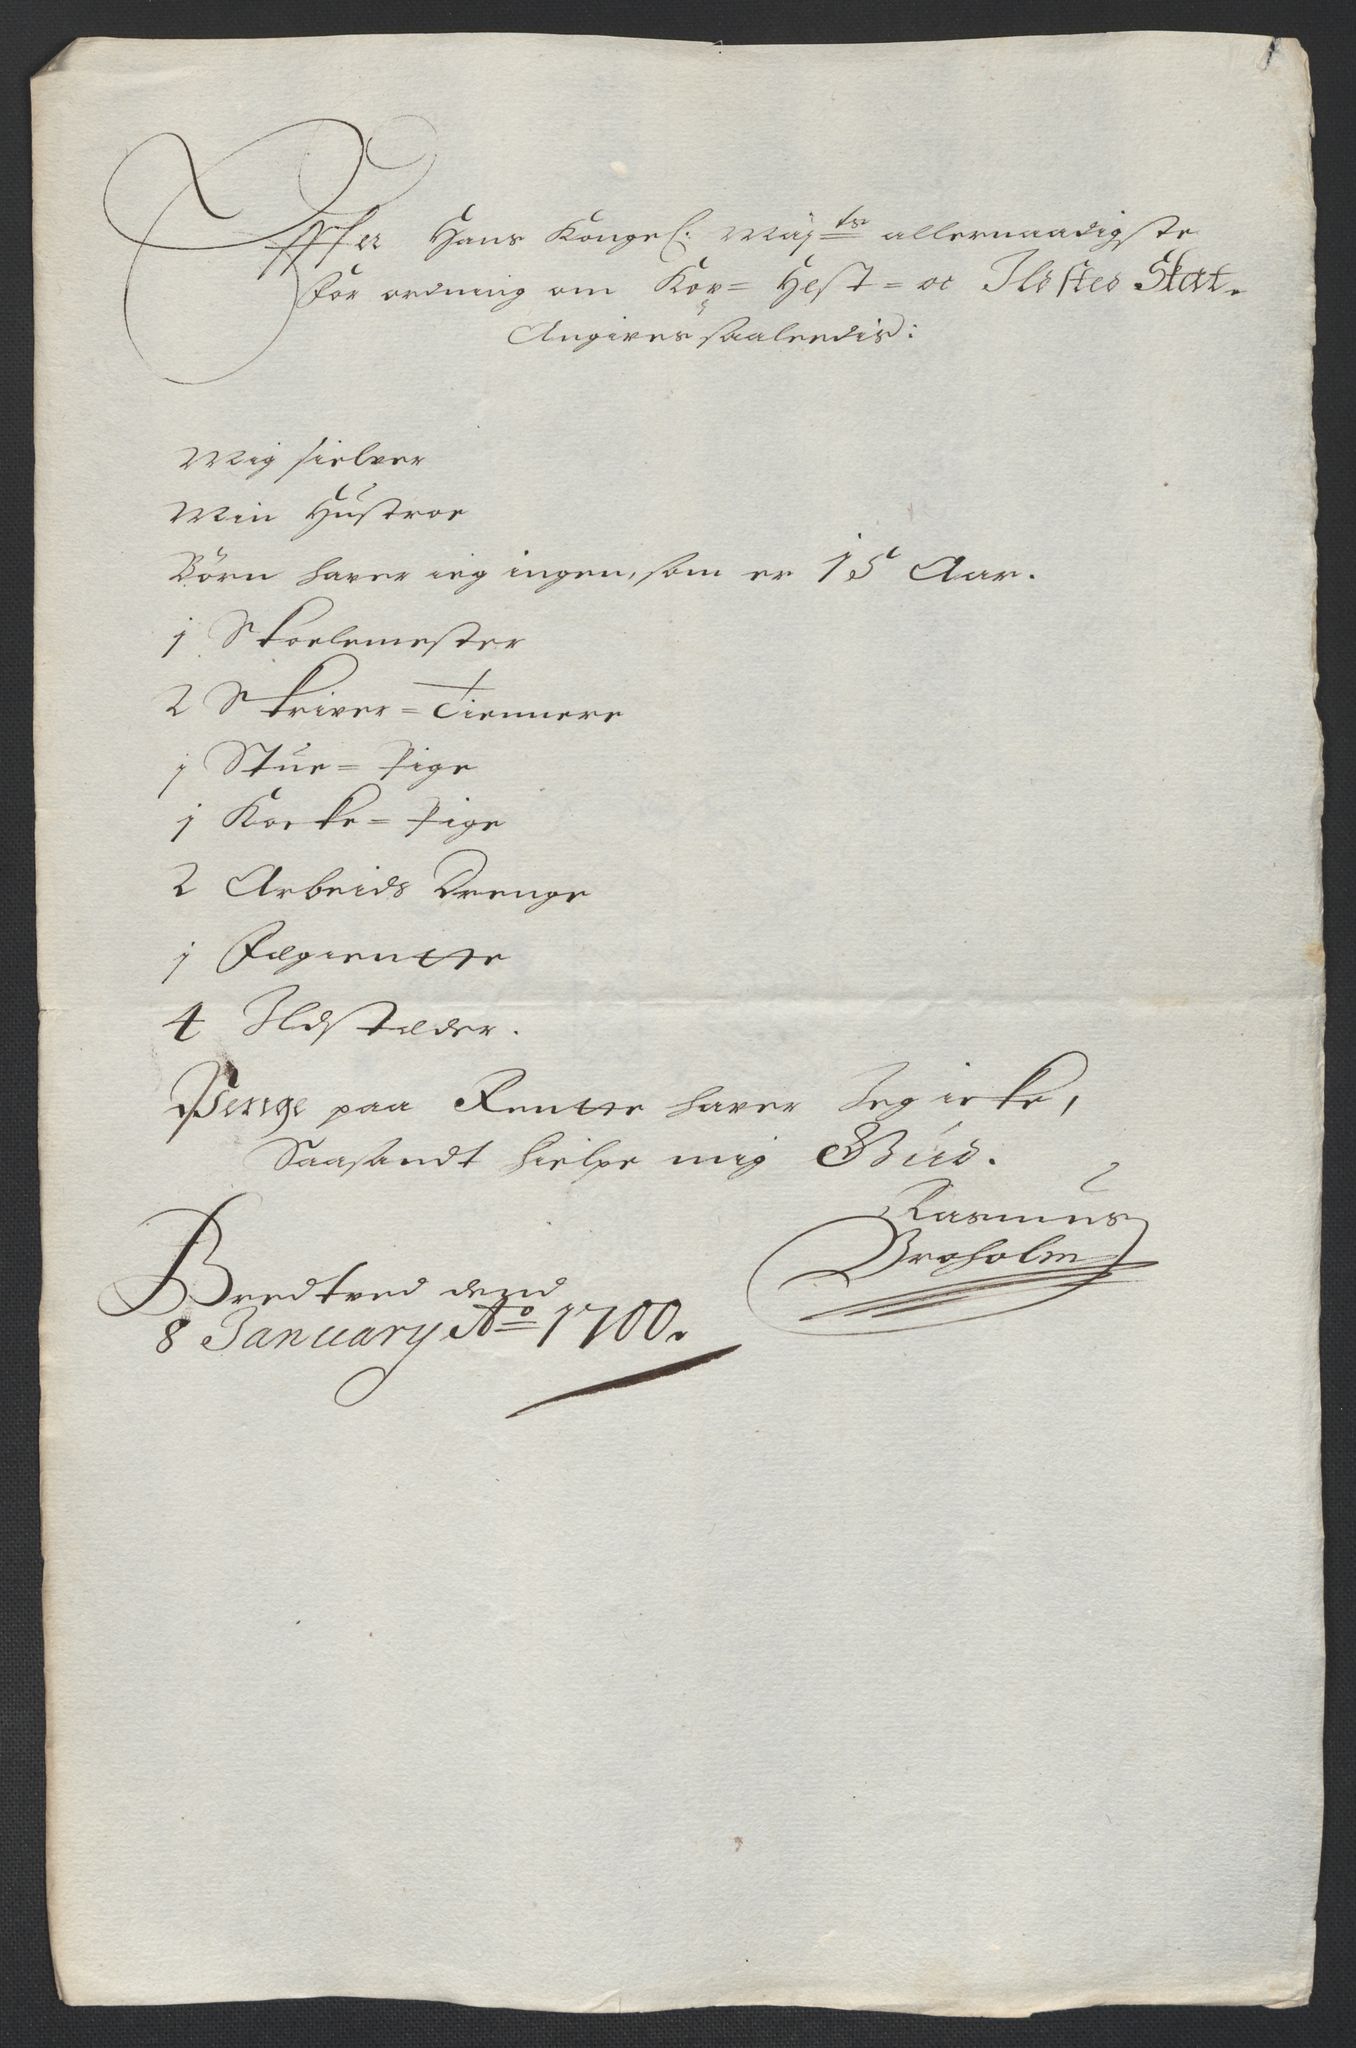 Effter Hans Kongel: Maj:ts allernaadigste
For ordning om Kop= Hest= oc Ildsted Skat.
Angives saaleedis:
Mig sielver
Min Hustroe
Børn haver ieg ingen, som er 15 Aar.
1 Skoelemester
2 Skriver=Tiennere
1 Stue=Pige
1 Kocke=Pige
2 Arbeids Drenge
1 Fægientte
4 Ildstæder.
Penge paa Rentte haver Jeg icke,
Saasandt hielpe mig Gud.
Rasmus
Broholm
Bredtved dend
8 January Ao 1700.